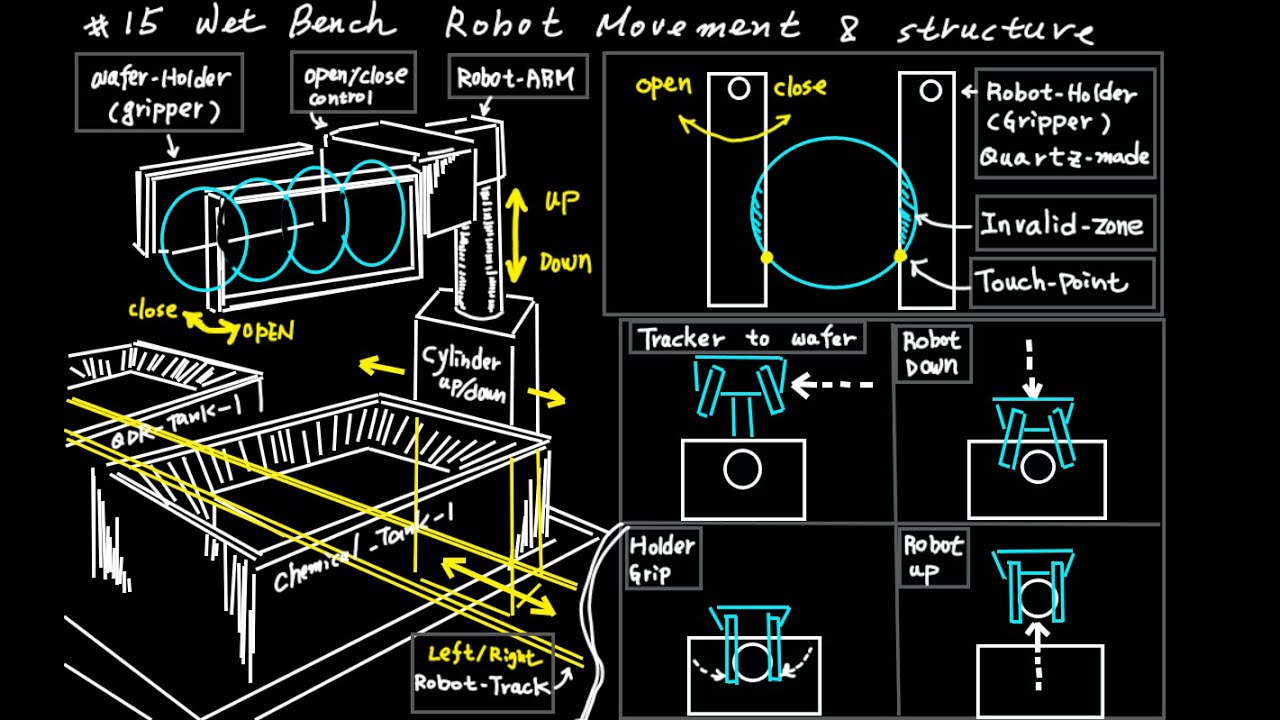 #15 Wet Bench Robot Movement & structure
wafer-Holder
(gripper)
open/close
control
Robot-ARM
UP
Down
close
OPEN
Cylinder
up/down
QDR-Tank-1
Chemical-Tank-1
Left/Right
Robot-Track
open
close
Robot-Holder
(Gripper)
Quartz-made
Invalid-zone
Touch-point
Tracker to wafer
Robot
Down
Holder
Grip
Robot
up